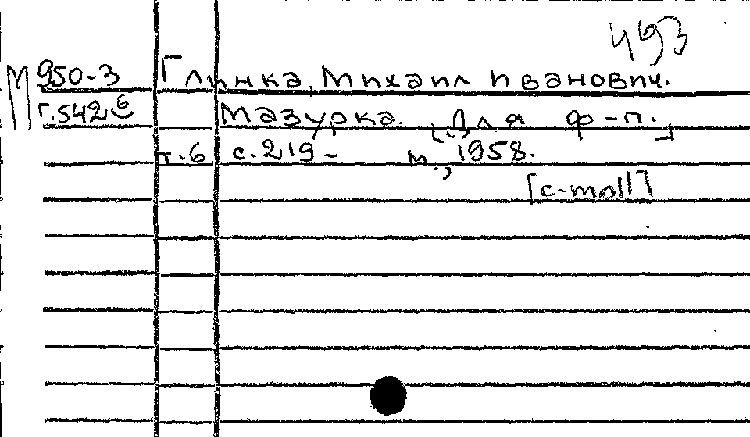 493
М 950-3 Глинка, Михаил Иванович.
Г.542 б Мазурка. [Для ф-п.]
т.6 с.219- м., 1958.
[c-moll]